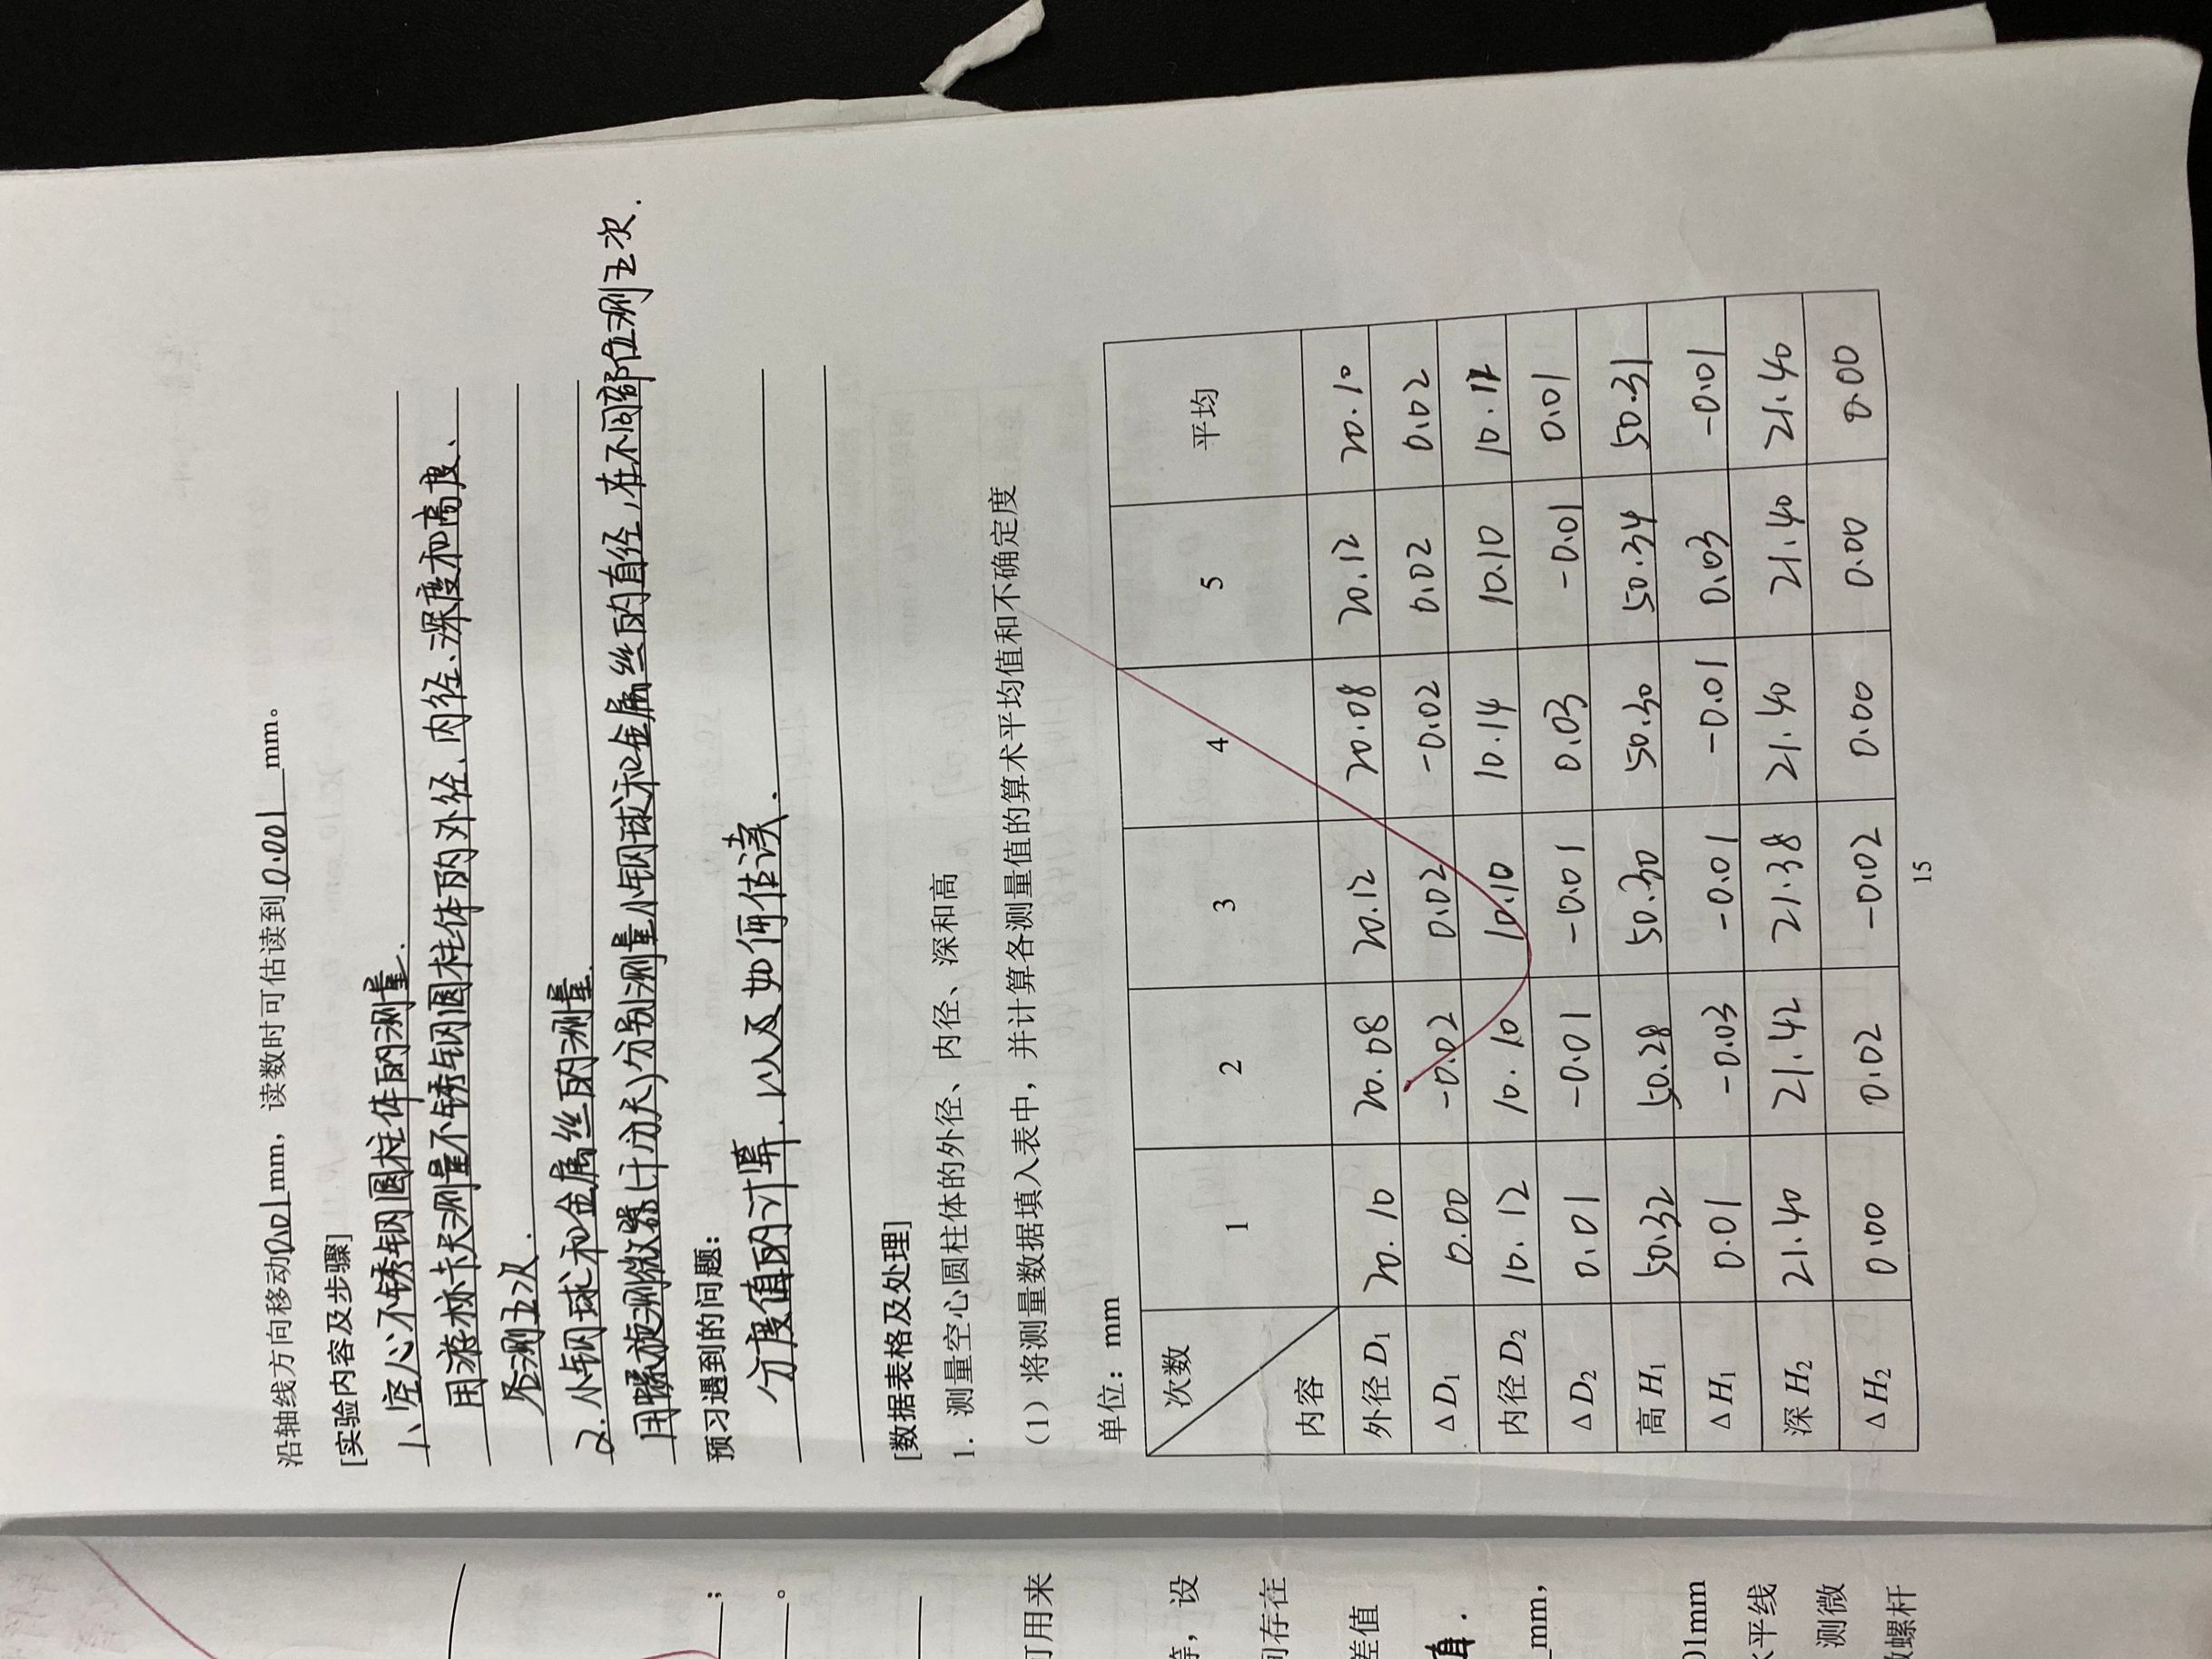 沿轴线方向移动0.01mm，读数时可估读到0.001mm。
[实验内容及步骤]
1、空心不锈钢圆柱体的测量.
用游标卡尺测量不锈钢圆柱体的外径、内径、深度和高度、
各测五次.
2.小钢球和金属丝的测量.
用螺旋测微器(千分尺)分别测量小钢球和金属丝的直径,在不同部位测五次.
预习遇到的问题：
分度值的计算、以及如何估读.
[数据表格及处理]
1. 测量空心圆柱体的外径、内径、深和高
（1）将测量数据填入表中，并计算各测量值的算术平均值和不确定度
单位：mm
次数 内容 1 2 3 4 5 平均
外径 D1 20.10 20.08 20.12 20.08 20.12 20.10
Δ D1 0.00 -0.02 0.02 -0.02 0.02 0.02
内径 D2 10.12 10.10 10.10 10.14 10.10
Δ D2 0.01 -0.01 -0.01 0.03 -0.01 0.01
高 H1 50.32 50.28 50.30 50.30 50.34 50.31
Δ H1 0.01 -0.03 -0.01 -0.01 0.03 -0.01
深 H2 21.40 21.42 21.38 21.40 21.40 21.40
Δ H2 0.00 0.02 -0.02 0.00 0.00 0.00
15
；
。
可用来
等，设
间存在
差值
值.
mm，
01mm
水平线
测微
微螺杆